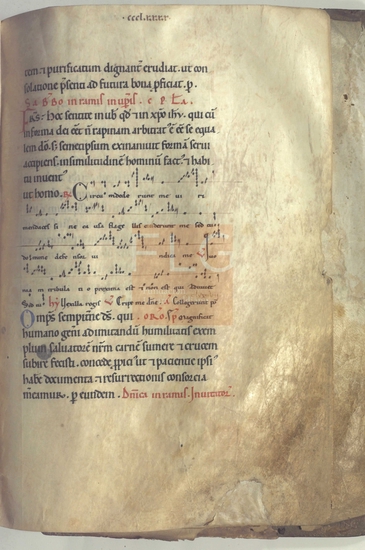 cem ⁊ purificatum dignanter erudiat. ut con
solatione p̄senti ad futura bona p̄ficiat. p.
in ramis
Frs̄. Hoc sentite in uob̄ qđ ⁊ in xp̄o ih̄u. qui cū
in forma dei eēt ñ rapinam arbitrat᷒ ē eē se equa
lem dō. s; semetipsum exinaniuit formā serui
accipiens. in similitudinē hominū fact᷒. ⁊ habi
tu inuent᷒
ut homo. Circūdederunt me uiri
mendaces sine causa flagellis ceciderunt me sed tu
domine defensor uindica me
quoniam tribulatio proxima est ⁊ non est qui adiuuet
hȳ Vexilla regis Eripe me dn̄e.
Omp̄s sempitn̄e ds̄. qui
humano geni ad imitandū humilitatis exem
plum saluatorē nr̄m carnē sumere ⁊ crucem
subire fecisti. concede ꝓpici᷒ ut ⁊ pacientie ipsi᷒
habē documenta ⁊ resurrectionis consorcia
meamur. p eundem. Dn̄ica in ramis. Inuitator̄.
FLG